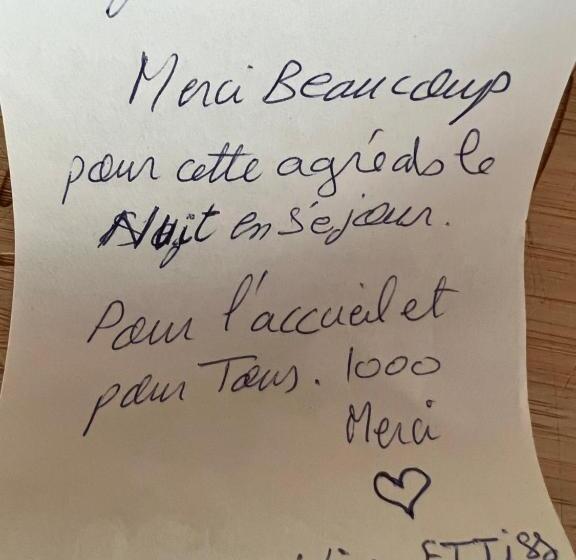 Merci Beaucoup
pour cette agréable
Nuit en séjour.
Pour l'accueil et
pour Tous. 1000
Merci